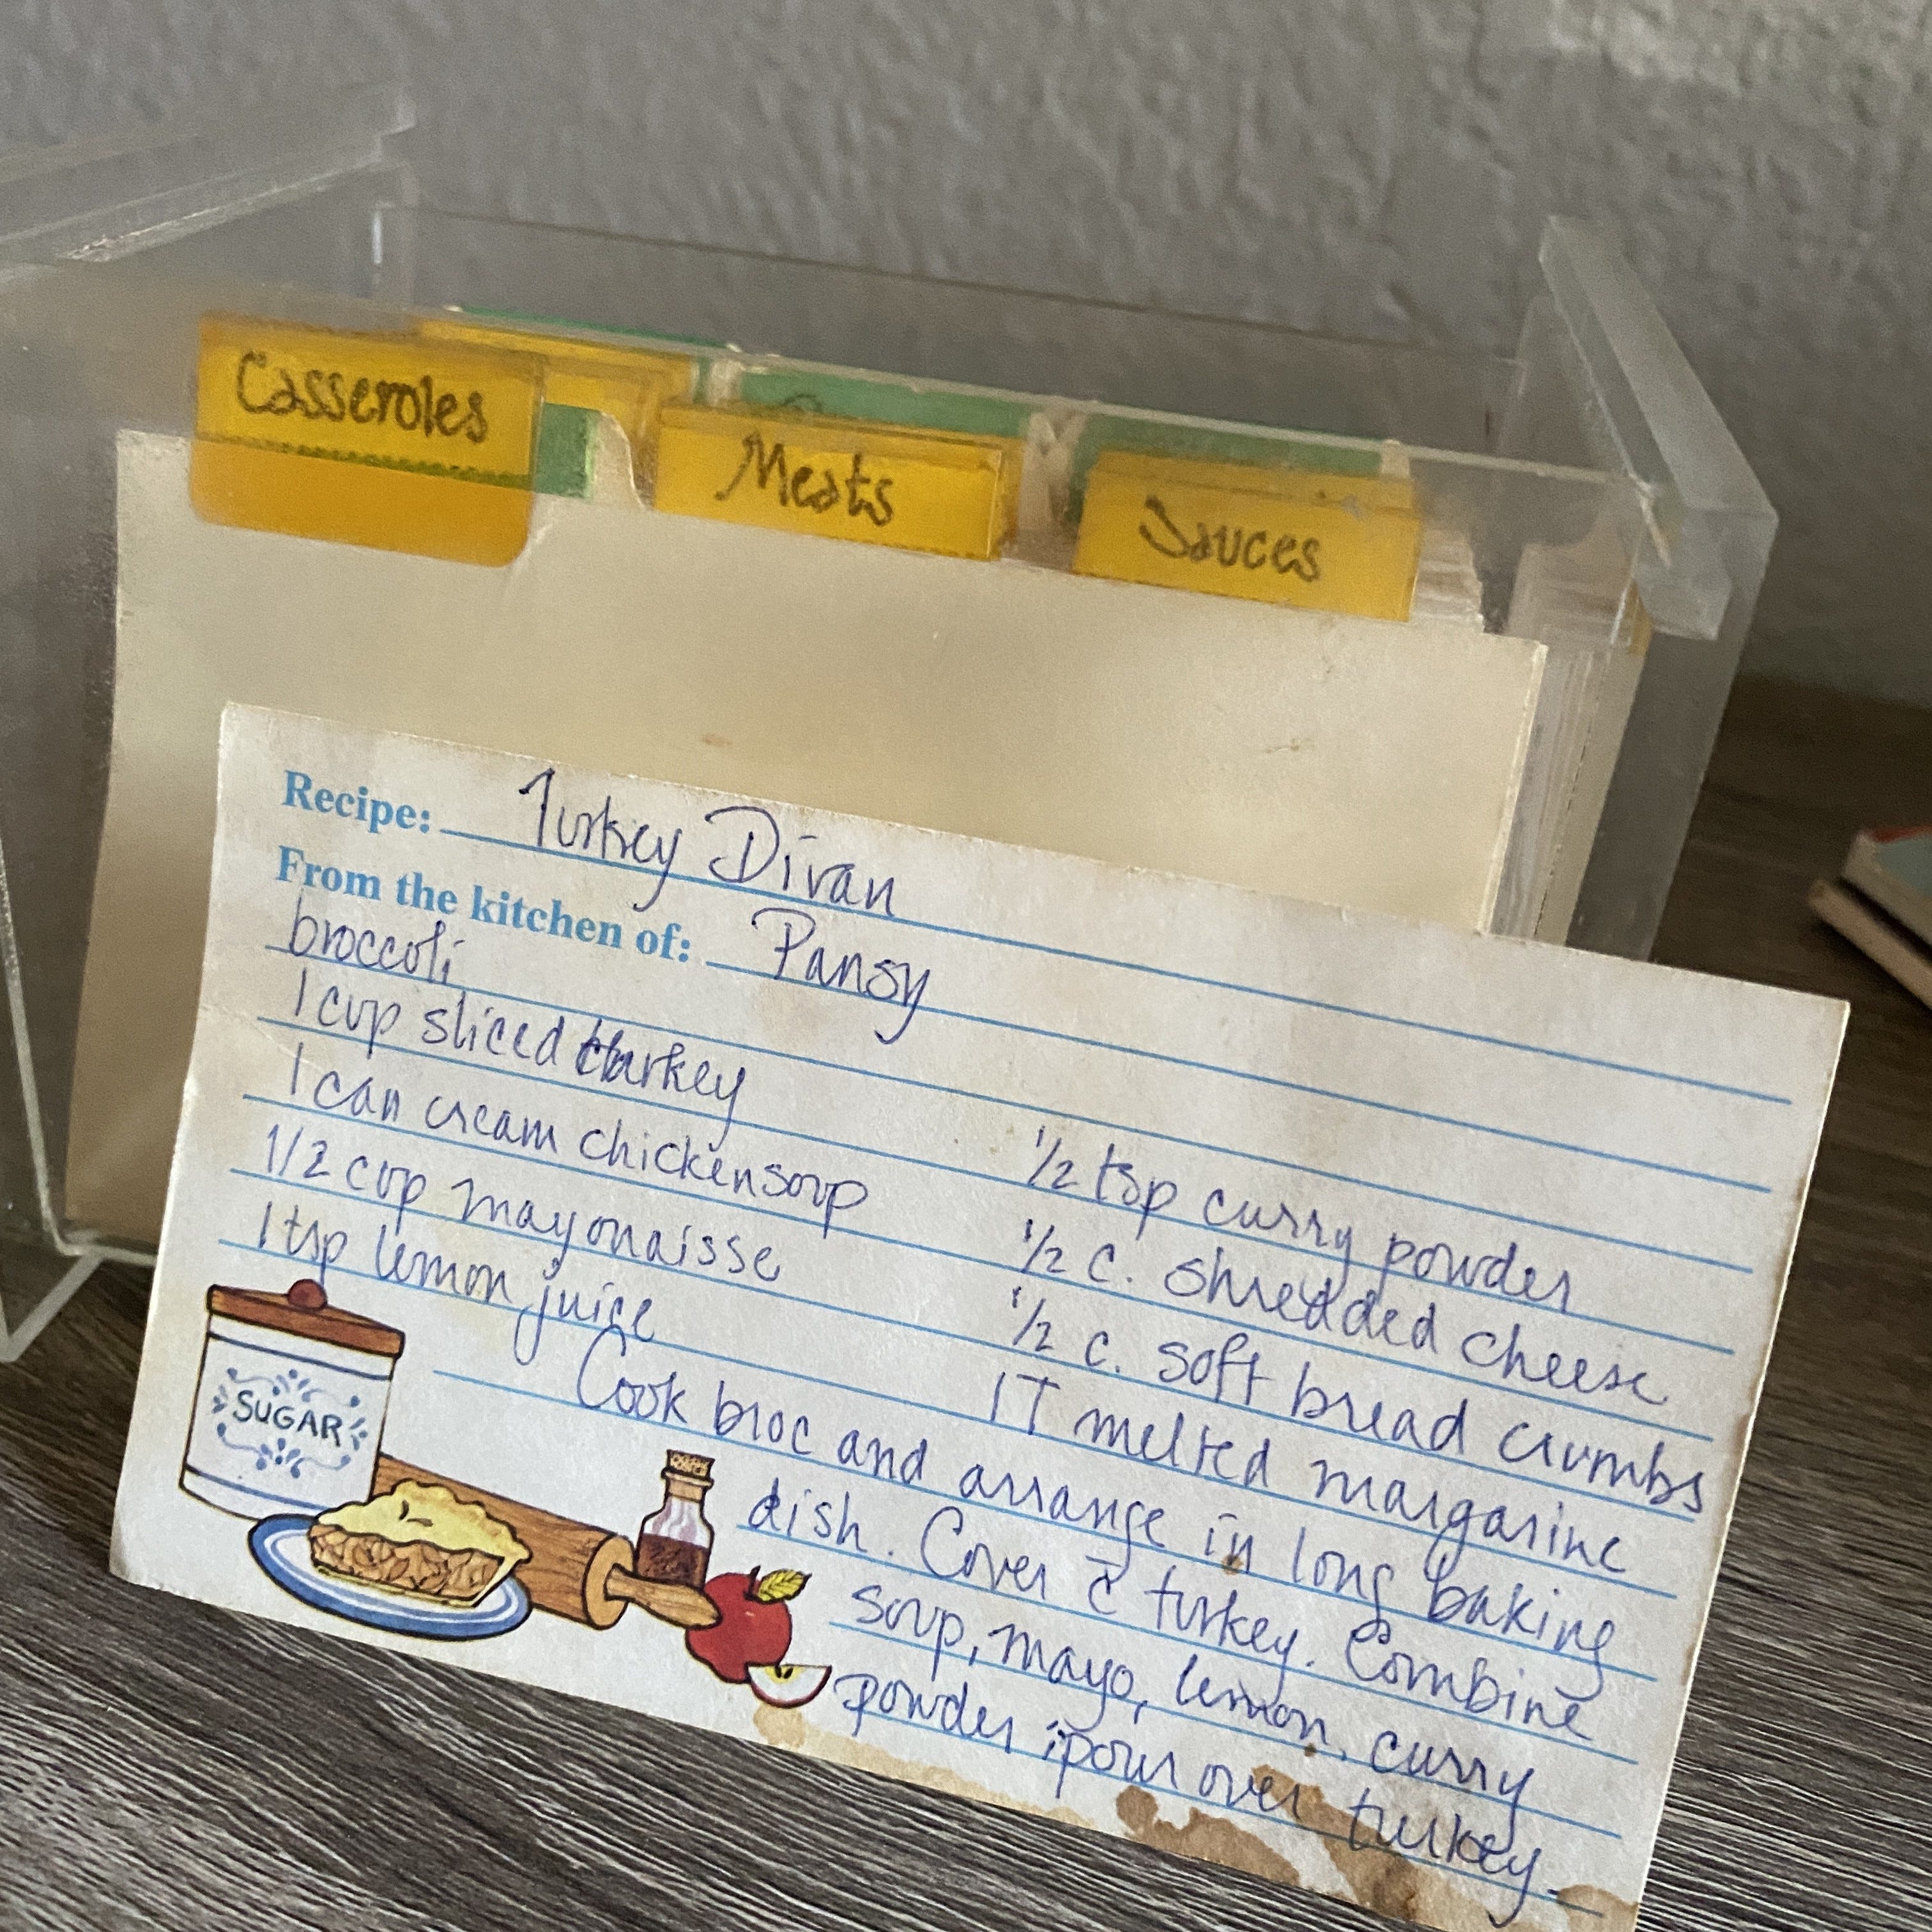 Casseroles
Meats
Sauces
Recipe: Turkey Divan
From the kitchen of: Pansy
broccoli
1 cup sliced turkey
1 can cream chicken soup
1/2 cup mayonaisse
1 tsp lemon juice
1/2 tsp curry powder
1/2 c. shredded cheese
1/2 c. soft bread crumbs
1 T melted margarine
Cook broc and arrange in long baking
dish. Cover c̄ turkey. Combine
soup, mayo, lemon, curry
powder ; pour over turkey
SUGAR